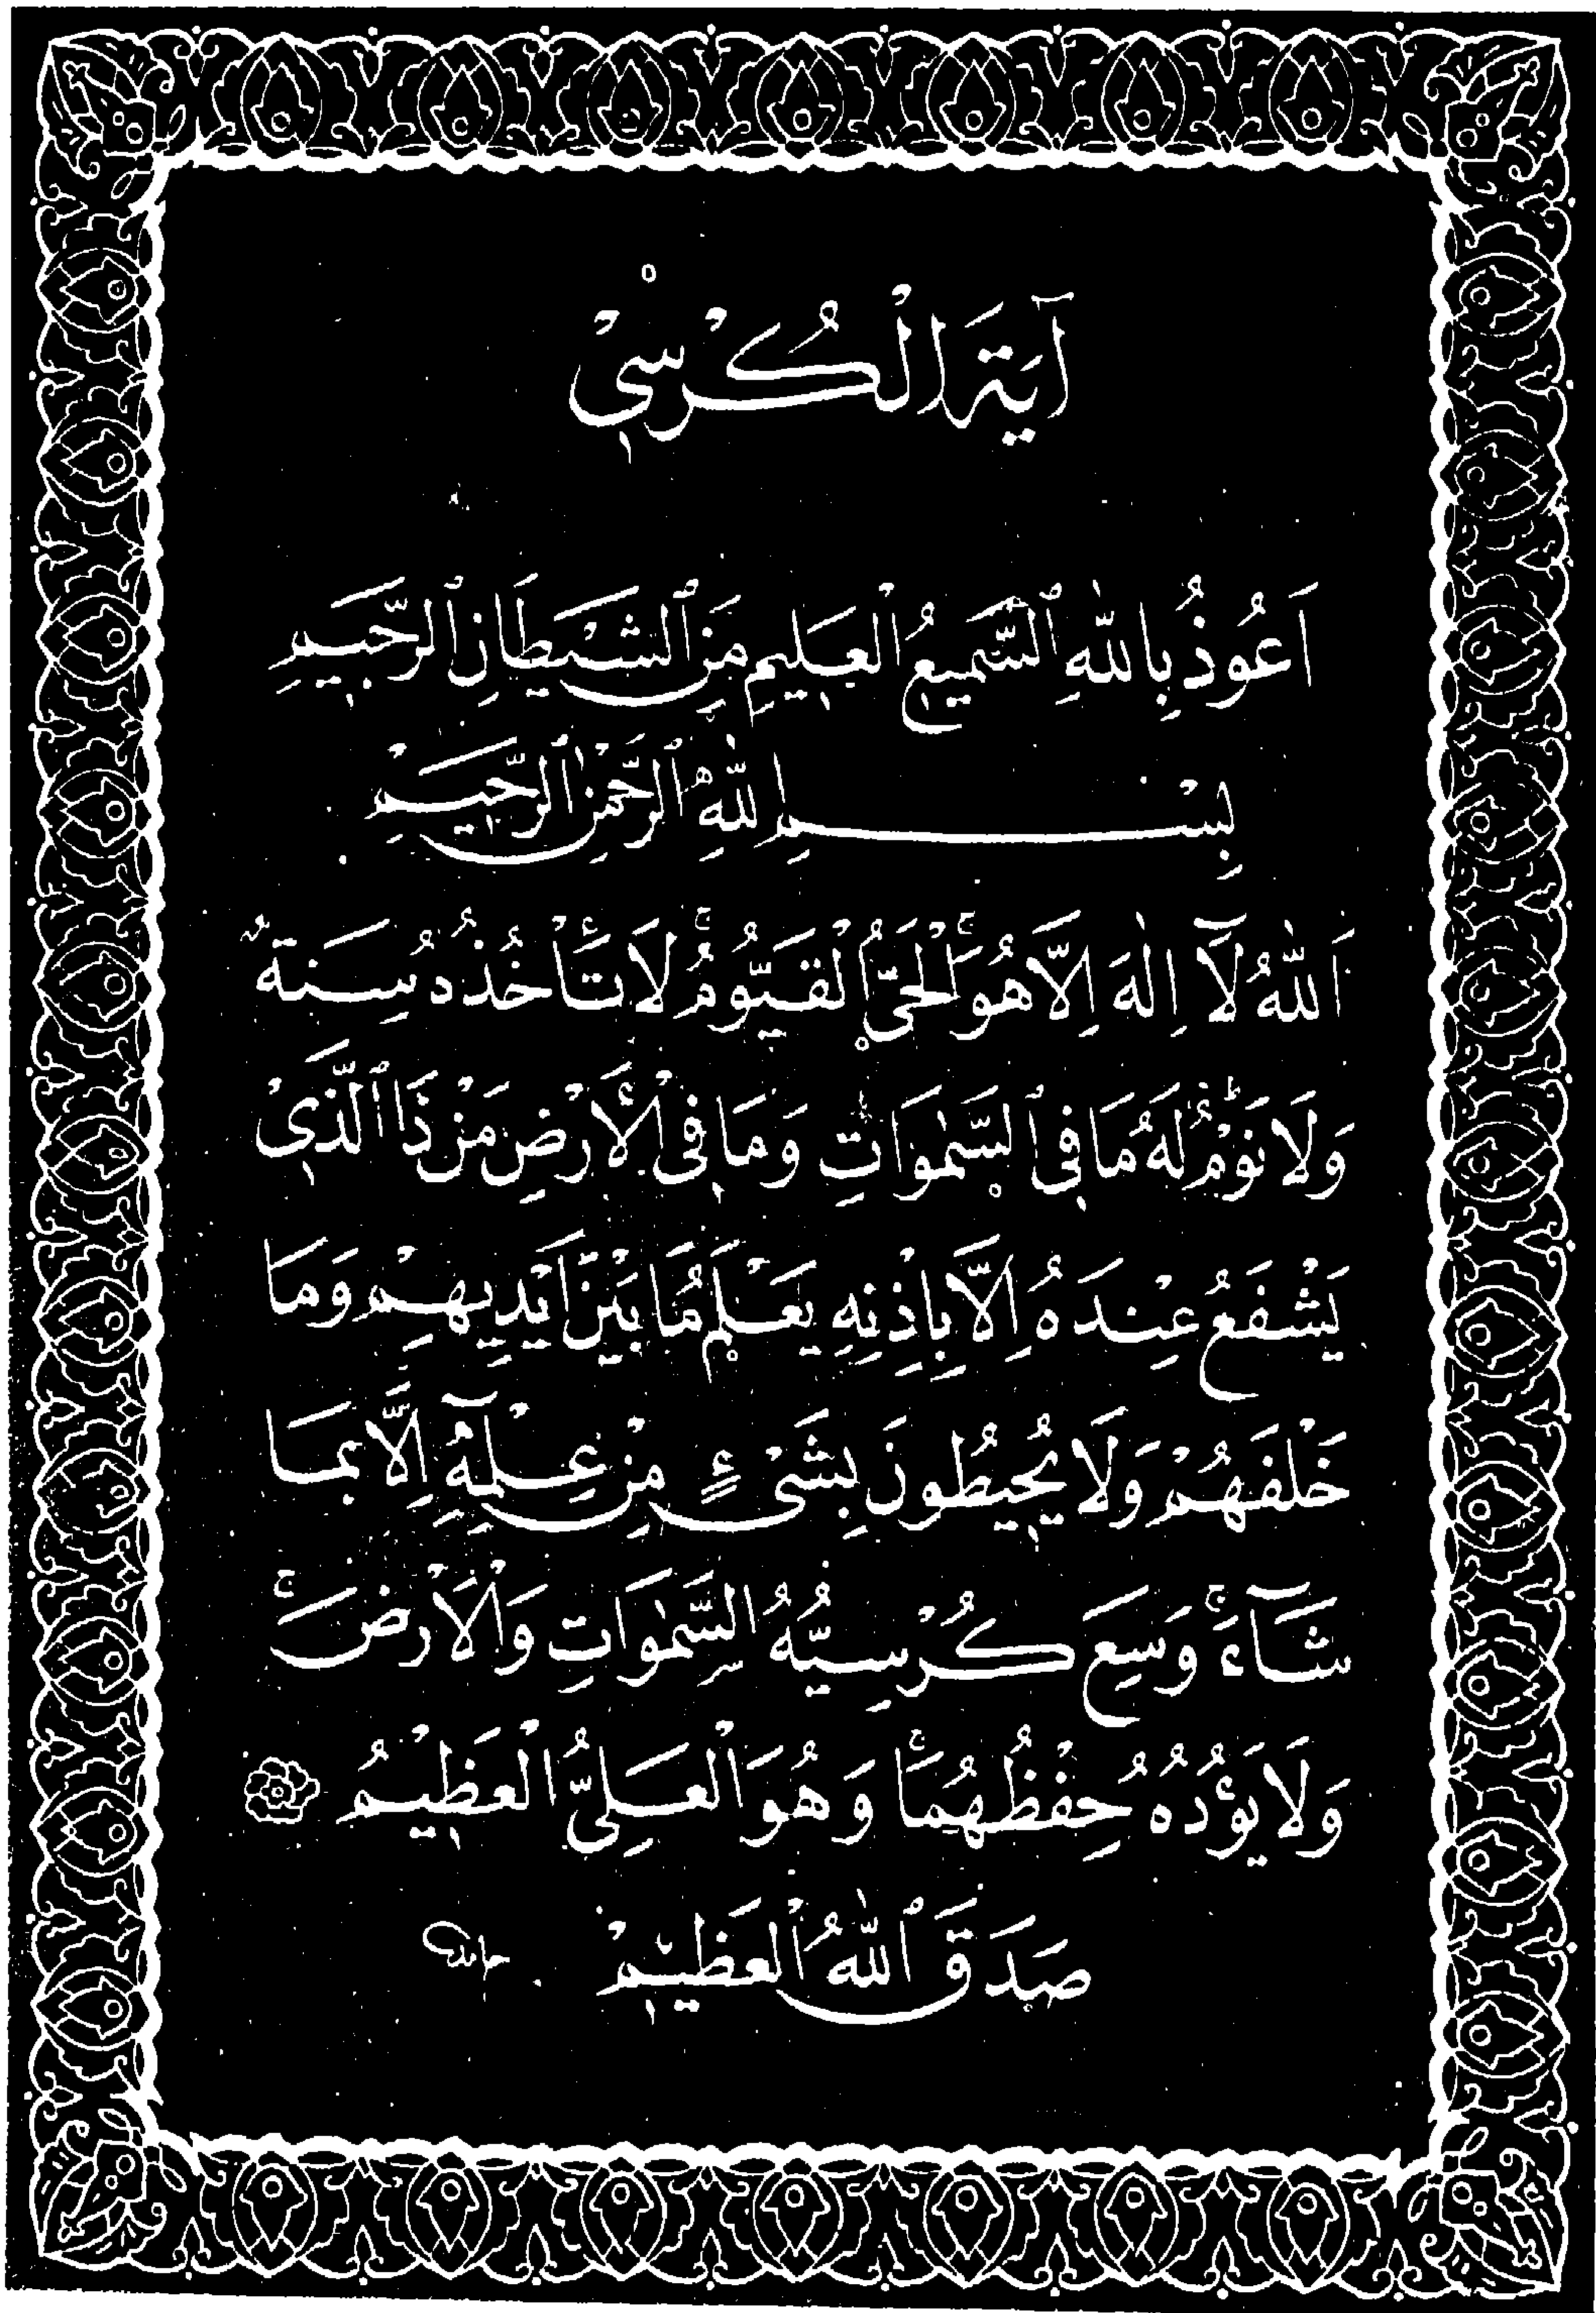 آيَةَ الْكُرْسِيْ
اَعُوذُ بِاللّٰهِ ٱلسَّمِيعُ ٱلعَلِيمِ مِنَ ٱلشَّيْطَانِ ٱلرَّجِيمِ
بِسْمِ اللّٰهِ ٱلرَّحْمٰنِ ٱلرَّحِيمْ
اَللّٰهُ لَآ اِلٰهَ اِلَّا هُوَۚ اَلْحَيُّ الْقَيُّومُۚ لَا تَأْخُذُهُ سِنَةٌ
وَلَا نَوْمٌۜ لَهُ مَا فِي ٱلسَّمٰوَاتِ وَمَا فِي الْأَرْضِ مَنْ ذَا ٱلَّذِيْ
يَشْفَعُ عِنْدَهُ اِلَّا بِاِذْنِهِ يَعْلَمُ مَا بَيْنَ اَيْدِيهِمْ وَمَا
خَلْفَهُمْ وَلَا يُحِيطُونَ بِشَيْءٍ مِنْ عِلْمِهِٓ اِلَّا بِمَا
شَآءَۚ وَسِعَ كُرْسِيُّهُ السَّمٰوَاتِ وَالْاَرْضَۚ
وَلَا يَؤُدُهُ حِفْظُهُمَاۚ وَهُوَ الْعَلِيُّ الْعَظِيْمُ
صَدَقَ ٱللّٰهُ ٱلعَظِيمْ